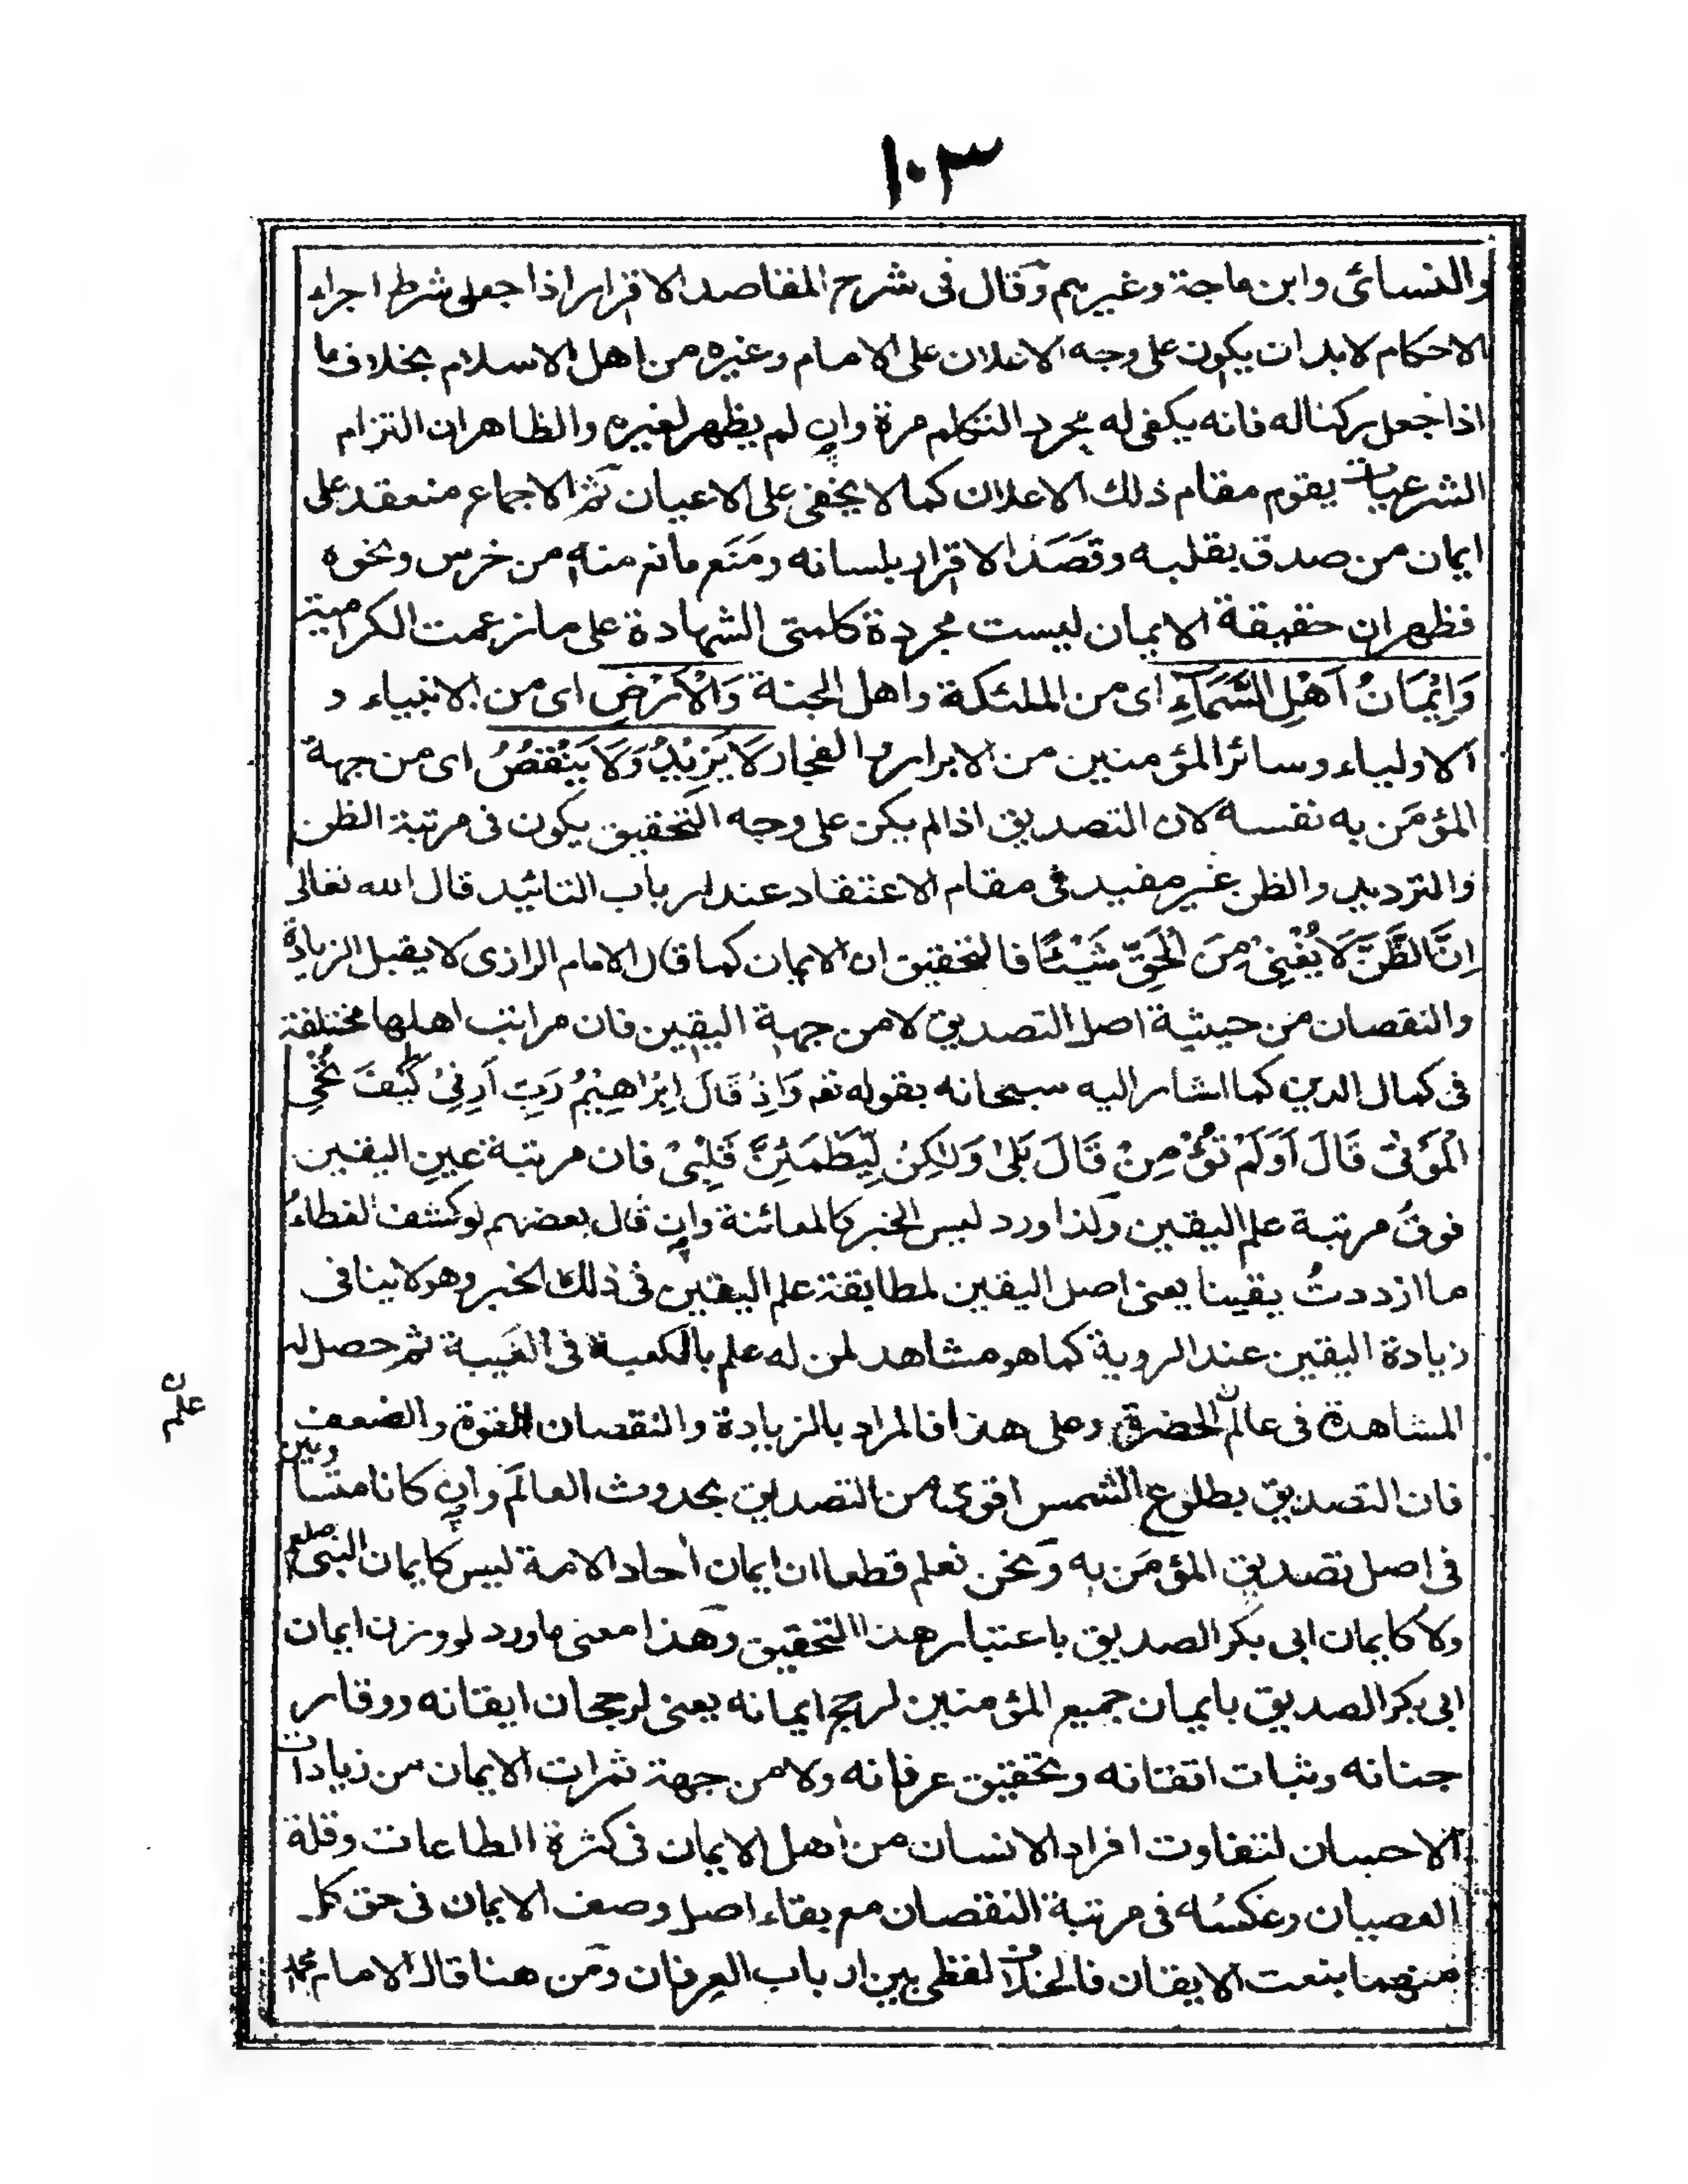 ١٠٣
والنسائی وابن ماجة وغيرہم وقال فی شرح المقاصد الاقرار اذا جعل شرط اجراء
الاحکام لا بد ان یکون علی وجه الاعلان علی الامام وغیرہ من اهل الاسلام بخلاف ما
اذا جعل رکنا له فانه یکفی له مجرد التکلم مرة وان لم یظهر لغیرہ والظاهر ان التزام
الشرعیات یقوم مقام ذلك الاعلان کما لا یخفی علی الاعیان ثم الاجماع منعقد علی
ایمان من صدق بقلبه وقَصَدَ الاقرار بلسانه ومَنَع مانع منه من خرس ونحوہ
فظهر ان حقیقة الایمان لیست مجردة کلمتی الشهادة علی ما زعمت الکرامیة
وَاِیْمَانُ اَهْلِ السَّمَآءِ ای من الملئکة واهل الجنة وَالْاَرْضِ ای من الانبیاء و
الاولیاء وسائر المؤمنین من الابرار والفجار لَا یَزِیْدُ وَلَا یَنْقُصُ ای من جهة
المؤمَن به نفسه لان التصدیق اذا لم یکن علی وجه التحقیق یکون فی مرتبة الظن
والتردید والظن غیر مفید فی مقام الاعتقاد عند ارباب التائید قال الله تعالی
اِنَّ الظَّنَّ لَا یُغْنِیْ مِنَ الْحَقِّ شَیْـًٔا فالتحقیق ان الایمان کما قال الامام الرازی لا یقبل الزیادة
والنقصان من حیثیة اصل التصدیق لا من جهة الیقین فان مراتب اهلها مختلفة
فی کمال الدین کما اشار الیه سبحانه بقوله تعـ وَاِذْ قَالَ اِبْرَاهِیْمُ رَبِّ اَرِنِیْ کَیْفَ تُحْیِ
الْمَوْتٰی قَالَ اَوَلَمْ تُؤْمِنْ قَالَ بَلٰی وَلٰکِنْ لِّیَطْمَئِنَّ قَلْبِیْ فان مرتبة عین الیقین
فوق مرتبة علم الیقین ولذا ورد لیس الخبر کالمعائنة وان قال بعضهم لو کشف الغطاء
ما ازددتُ یقینا یعنی اصل الیقین لمطابقة علم الیقین فی ذلك الخبر وهو لا ینافی
زیادة الیقین عند الرویة کما هو مشاهد لمن له علم بالکعبة فی الغیبة ثم حصل له
المشاهدة فی عالم الحضرة وعلی هذا فالمراد بالزیادة والنقصان القوة والضعف
فان التصدیق بطلوع الشمس اقوی من التصدیق بحدوث العالَم وان کانا متساویین
فی اصل تصدیق المؤمَن به ونحن نعلم قطعا ان ایمان احاد الامة لیس کایمان النبی صلعم
ولا کایمان ابی بکر الصدیق باعتبار هذا التحقیق وهذا معنی ما ورد لو وزن ایمان
ابی بکر الصدیق بایمان جمیع المؤمنین لرجح ایمانه یعنی لرجحان ایقانه ووقار
جنانه وثبات اتقانه وتحقیق عرفانه ولا من جهة ثمرات الایمان من زیادات
الاحسان لتفاوت افراد الانسان من اهل الایمان فی کثرة الطاعات وقلة
العصیان وعکسُه فی مرتبة النقصان مع بقاء اصل وصف الایمان فی حق کل
منهما بنعت الایقان فالخلاف لفظی بین ارباب العرفان ومن هنا قال الامام محمد